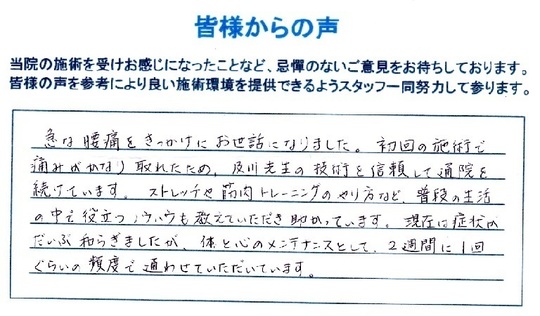 皆様からの声
当院の施術を受けお感じになったことなど、忌憚のないご意見をお待ちしております。
皆様の声を参考により良い施術環境を提供できるようスタッフ一同努力して参ります。
急な腰痛をきっかけにお世話になりました。初回の施術で
痛みがかなり取れたため、及川先生の技術を信頼して通院を
続けています。ストレッチや筋肉トレーニングのやり方など、普段の生活
の中で役立つノウハウも教えていただき助かっています。現在は症状は
だいぶ和らぎましたが、体と心のメンテナンスとして、2週間に1回
ぐらいの頻度で通わせていただいています。